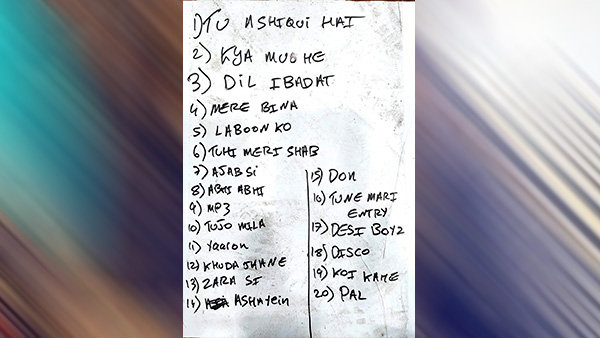 1) TU ASHIQUI HAI
2) KYA MUJHE
3) DIL IBADAT
4) MERE BINA
5) LABOON KO
6) TUHI MERI SHAB
7) AJAB SI
8) ABHI ABHI
9) MP3
10) TUJO MILA
11) Yaaron
12) KHUDA JHANE
13) ZARA SI
14) ASHAYein
15) DON
16) TUNE MARI
ENTRY
17) DESI BOYZ
18) DISCO
19) KOI KAHE
20) PAL